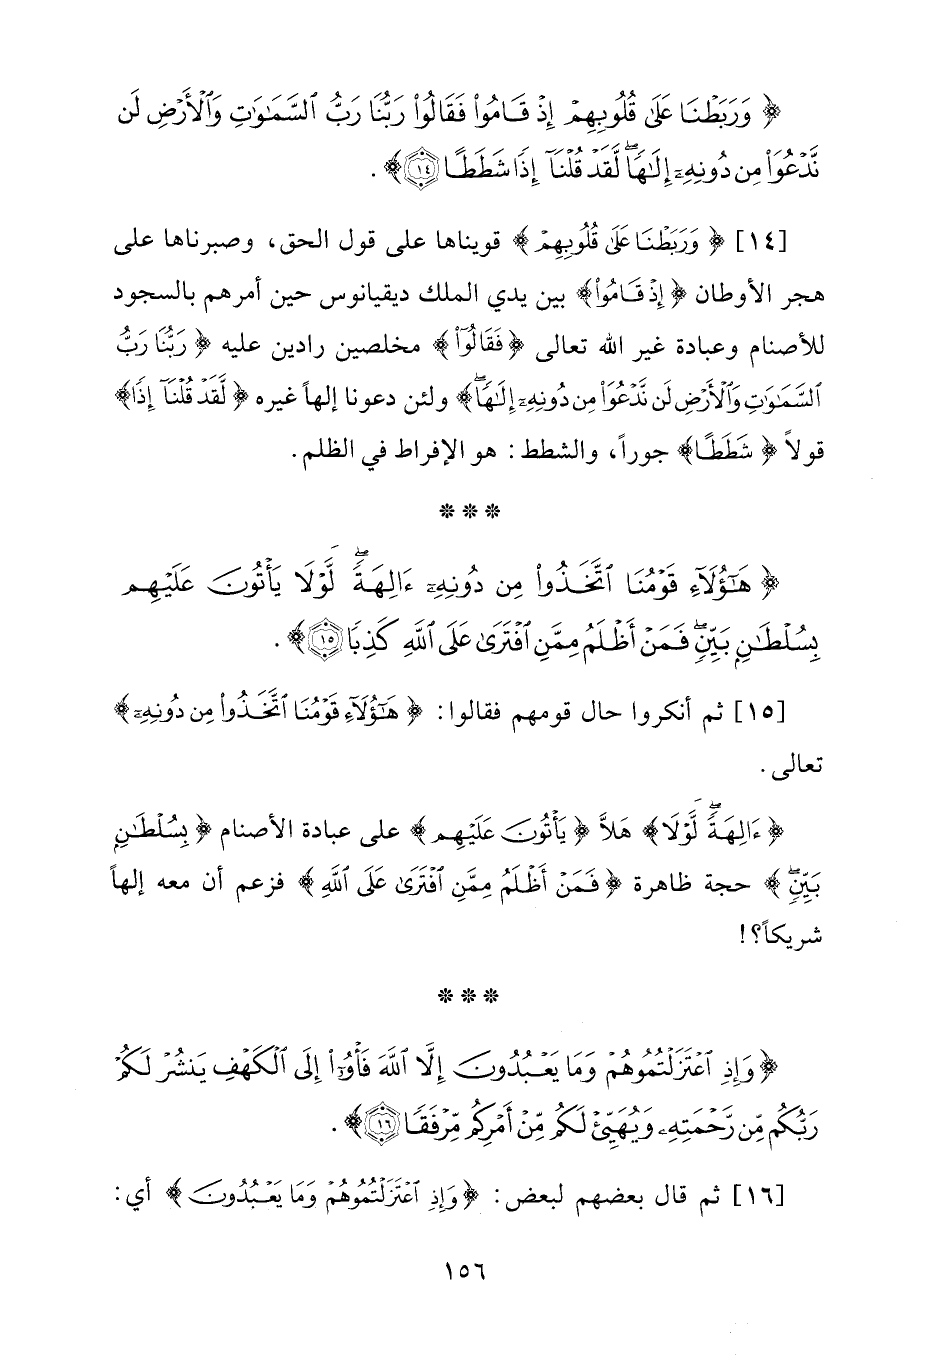 ﴿ وَرَبَطْنَا عَلَىٰ قُلُوبِهِمْ إِذْ قَامُوا۟ فَقَالُوا۟ رَبُّنَا رَبُّ ٱلسَّمَـٰوَٰتِ وَٱلْأَرْضِ لَن
نَّدْعُوَا۟ مِن دُونِهِۦٓ إِلَـٰهًاۖ لَّقَدْ قُلْنَآ إِذًا شَطَطًا ١٤﴾ .
[١٤] ﴿ وَرَبَطْنَا عَلَىٰ قُلُوبِهِمْ ﴾ قويناها على قول الحق، وصبرناها على
هجر الأوطان ﴿ إِذْ قَامُوا۟﴾ بين يدي الملك ديقيانوس حين أمرهم بالسجود
للأصنام وعبادة غير الله تعالى ﴿ فَقَالُوا۟ ﴾ مخلصين رادين عليه ﴿ رَبُّنَا رَبُّ
ٱلسَّمَـٰوَٰتِ وَٱلْأَرْضِ لَن نَّدْعُوَا۟ مِن دُونِهِۦٓ إِلَـٰهًاۖ﴾ ولئن دعونا إلهاً غيره ﴿ لَّقَدْ قُلْنَآ إِذًا﴾
قولاً ﴿ شَطَطًا﴾ جوراً، والشطط: هو الإفراط في الظلم.
* * *
﴿ هَـٰٓؤُلَآءِ قَوْمُنَا ٱتَّخَذُوا۟ مِن دُونِهِۦٓ ءَالِهَةًۖ لَّوْلَا يَأْتُونَ عَلَيْهِم
بِسُلْطَـٰنٍۭ بَيِّنٍۖ فَمَنْ أَظْلَمُ مِمَّنِ ٱفْتَرَىٰ عَلَى ٱللَّهِ كَذِبًا ١٥﴾ .
[١٥] ثم أنكروا حال قومهم فقالوا: ﴿ هَـٰٓؤُلَآءِ قَوْمُنَا ٱتَّخَذُوا۟ مِن دُونِهِۦٓ ﴾
تعالى.
﴿ ءَالِهَةًۖ لَّوْلَا﴾ هَلاَّ ﴿ يَأْتُونَ عَلَيْهِم ﴾ على عبادة الأصنام ﴿ بِسُلْطَـٰنٍۭ
بَيِّنٍۖ ﴾ حجة ظاهرة ﴿ فَمَنْ أَظْلَمُ مِمَّنِ ٱفْتَرَىٰ عَلَى ٱللَّهِ ﴾ فزعم أن معه إلهاً
شريكاً؟!
* * *
﴿ وَإِذِ ٱعْتَزَلْتُمُوهُمْ وَمَا يَعْبُدُونَ إِلَّا ٱللَّهَ فَأْوُۥٓا۟ إِلَى ٱلْكَهْفِ يَنشُرْ لَكُمْ
رَبُّكُم مِّن رَّحْمَتِهِۦ وَيُهَيِّئْ لَكُم مِّنْ أَمْرِكُم مِّرْفَقًا ١٦﴾ .
[١٦] ثم قال بعضهم لبعض: ﴿ وَإِذِ ٱعْتَزَلْتُمُوهُمْ وَمَا يَعْبُدُونَ ﴾ أي:
١٥٦